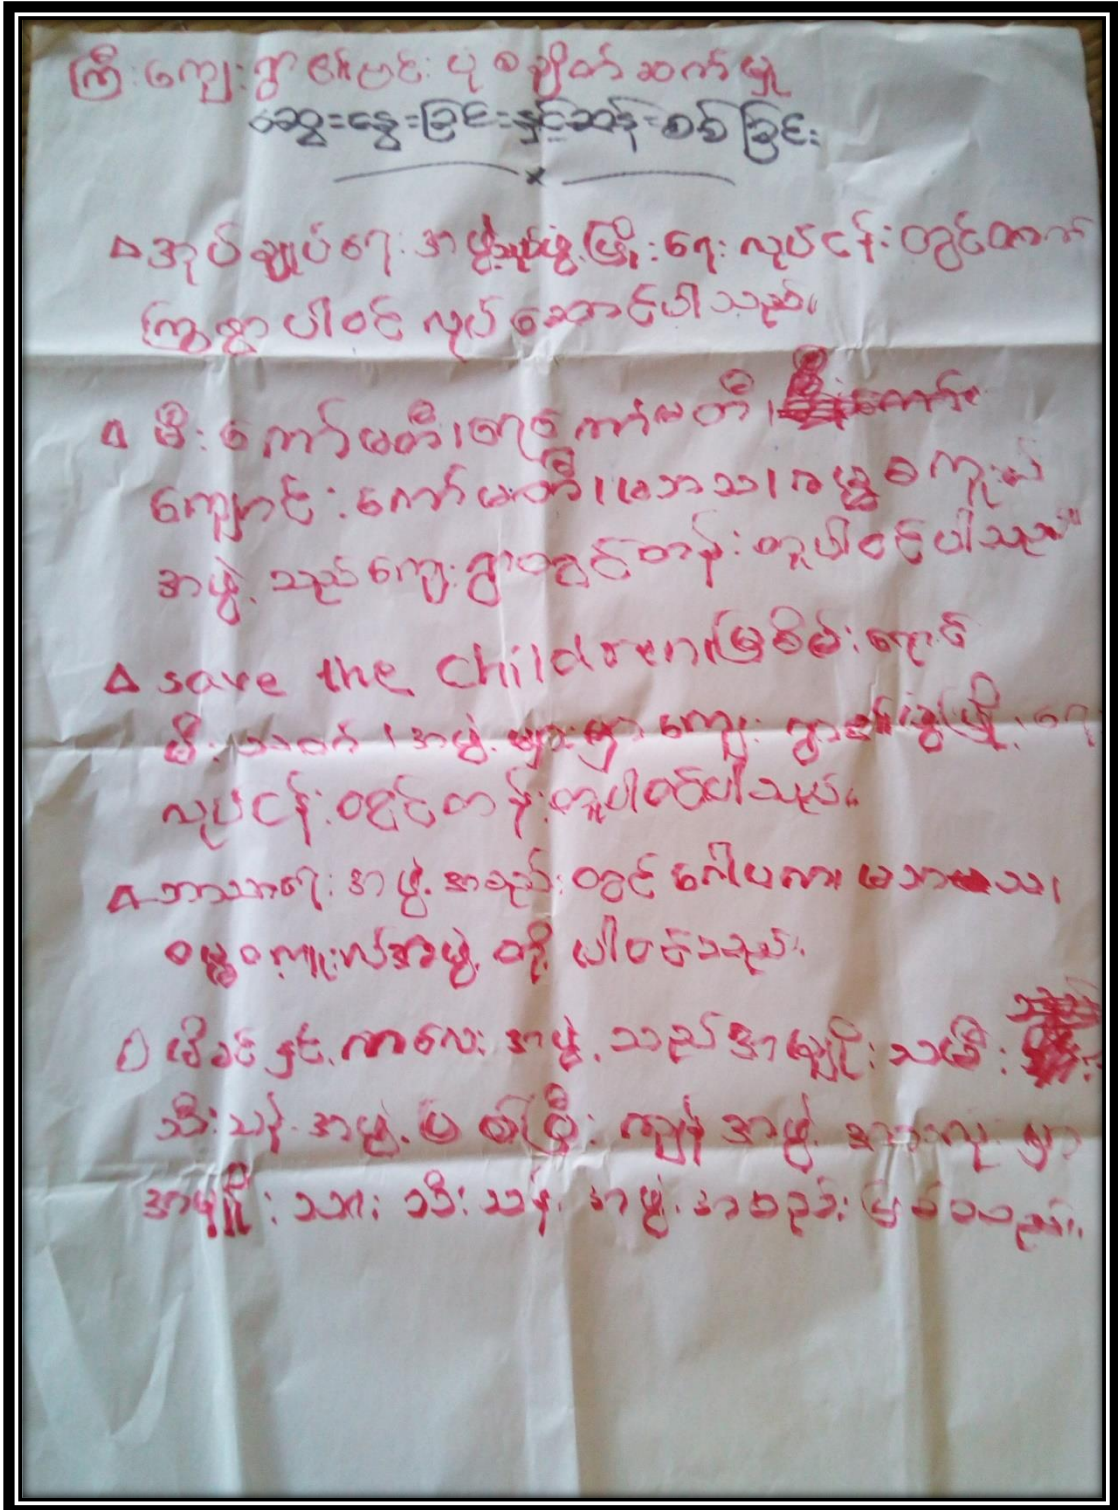 ကြီး ကျေးရွာ ဇာတ်ပုံချိတ်ဆက်မှု
ဆွေးနွေးခြင်းနှင့်ဆန်းစစ်ခြင်း
x
အုပ်ချုပ်ရေး အဖွဲ့ ဖွံ့ဖြိုးရေး လုပ်ငန်းတွင်တက်
ကြွစွာ ပါဝင် လုပ်ဆောင်ပါသည်။
မီး ကော်မတီ၊ ရေကော်မတီ၊
ကျောင်းကော်မတီ၊ မဘသ၊ ဓမ္မစကူးလ်
အဖွဲ့ သည် ကျေးရွာတွင် တန်းတူပါဝင်ပါသည်။
save the children၊ မြစိမ်းရောင်
အဖွဲ့ များမှာ ကျေးရွာ ဖွံ့ဖြိုးရေး
လုပ်ငန်းတွင် တန်းတူပါဝင်ပါသည်။
ဘာသာရေး အဖွဲ့ အစည်းတွင် ဂေါပက၊ မဘသ၊
ဓမ္မစကူးလ်အဖွဲ့ တို့ ပါဝင်သည်။
မိခင်နှင့် ကလေး အဖွဲ့ သည် အမျိုးသမီး
သီးသန့် အဖွဲ့ ဖြစ်ပြီး ကျန် အဖွဲ့ အားလုံးမှာ
အမျိုးသား သီးသန့် အဖွဲ့ အစည်း ဖြစ်သည်။